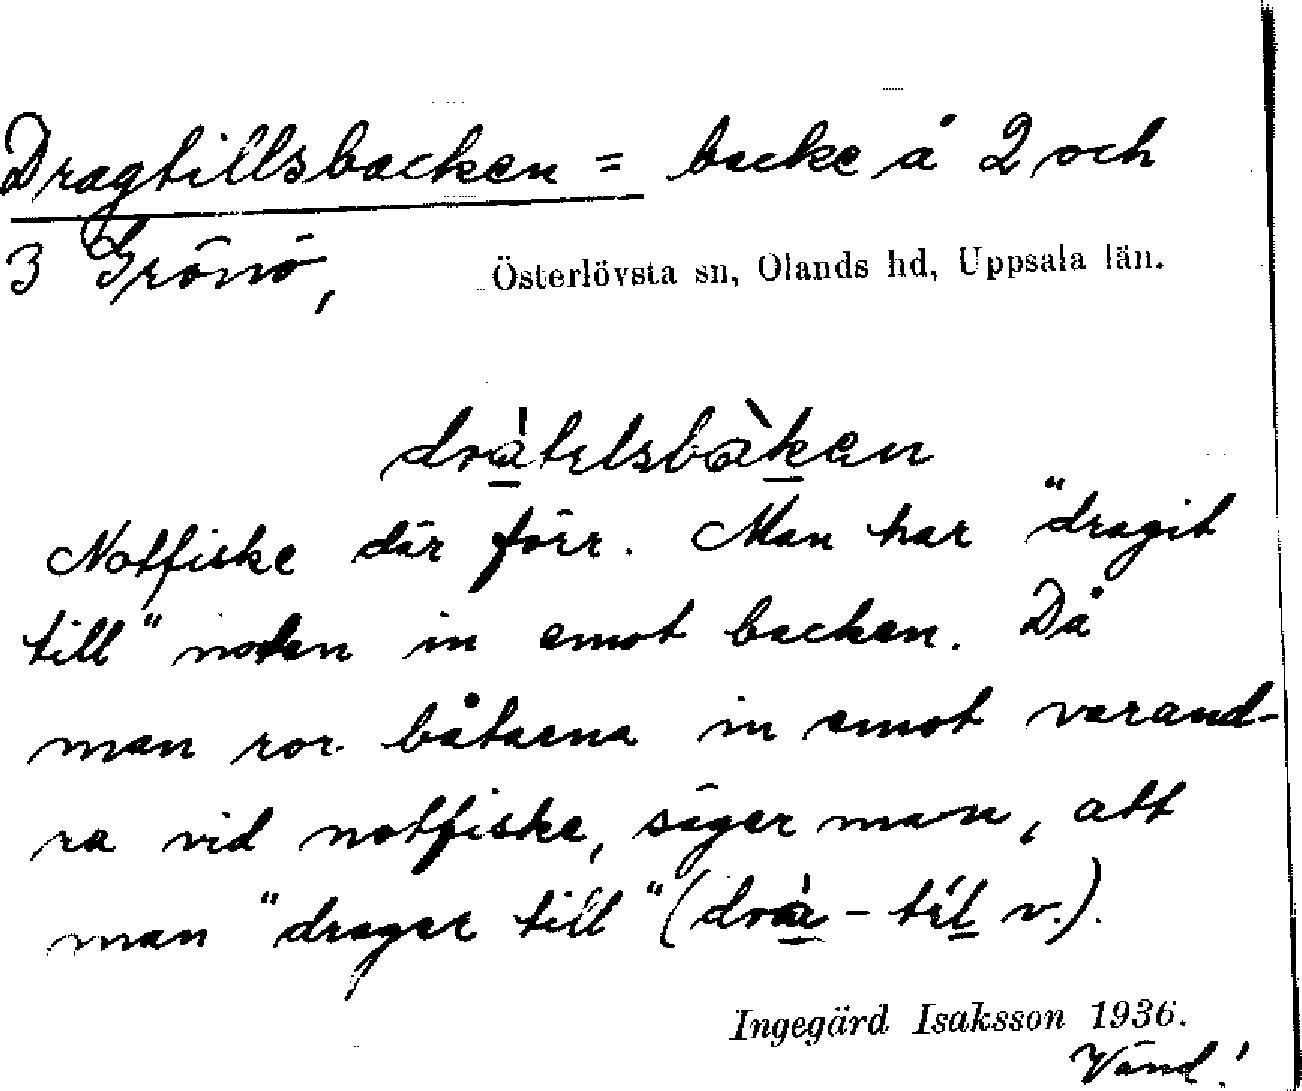 Dragtillsbacken = backe å 2 och
3 Grönö,
Österlövsta sn, Olands hd, Uppsala län.
dràtɩlsbàken
Notfiske där förr. Man har "dragit
till" noten in emot backen. Då
man ror båtarna in emot varand-
ra vid notfiske, säger man, att
man "drager till" (drà - tíl v.).
Ingegärd Isaksson 1936.
Vänd!